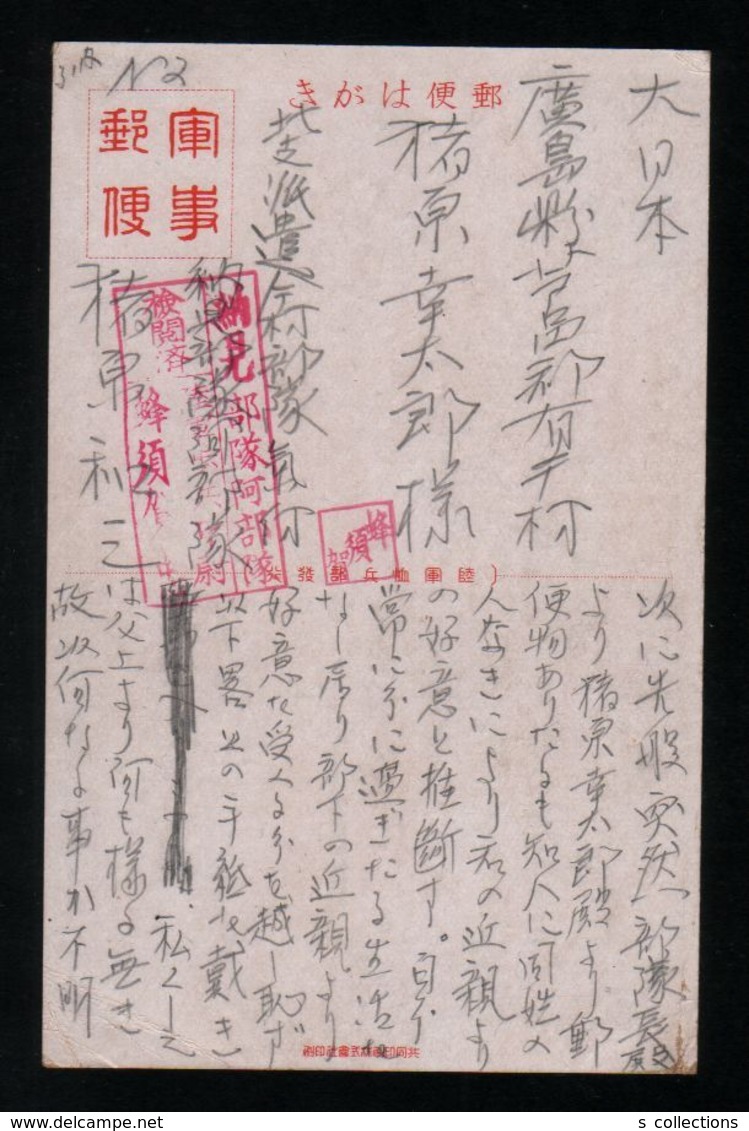 No2
郵便はがき
軍事
郵便
大日本
廣島縣芦品郡有子村
猪原幸太郎様
北支派遣
納見部隊阿部隊
猪原
納見部隊阿部隊
検閲済
蜂須
蜂須加
陸軍恤兵部發
次に先般突然部隊長殿
より猪原幸太郎殿より郵
便物ありたるも知人に同姓の
人なきにより君の近親より
の好意と推断す。自分
常に分に過ぎたる生活を
なし居り部下の近親より
好意を受くる分を越し恥ず
以下畧との手紙を戴き
私くしと
は父上より何も様る無き
故以何なる事か不明
共同印刷株式會社印刷
s collections